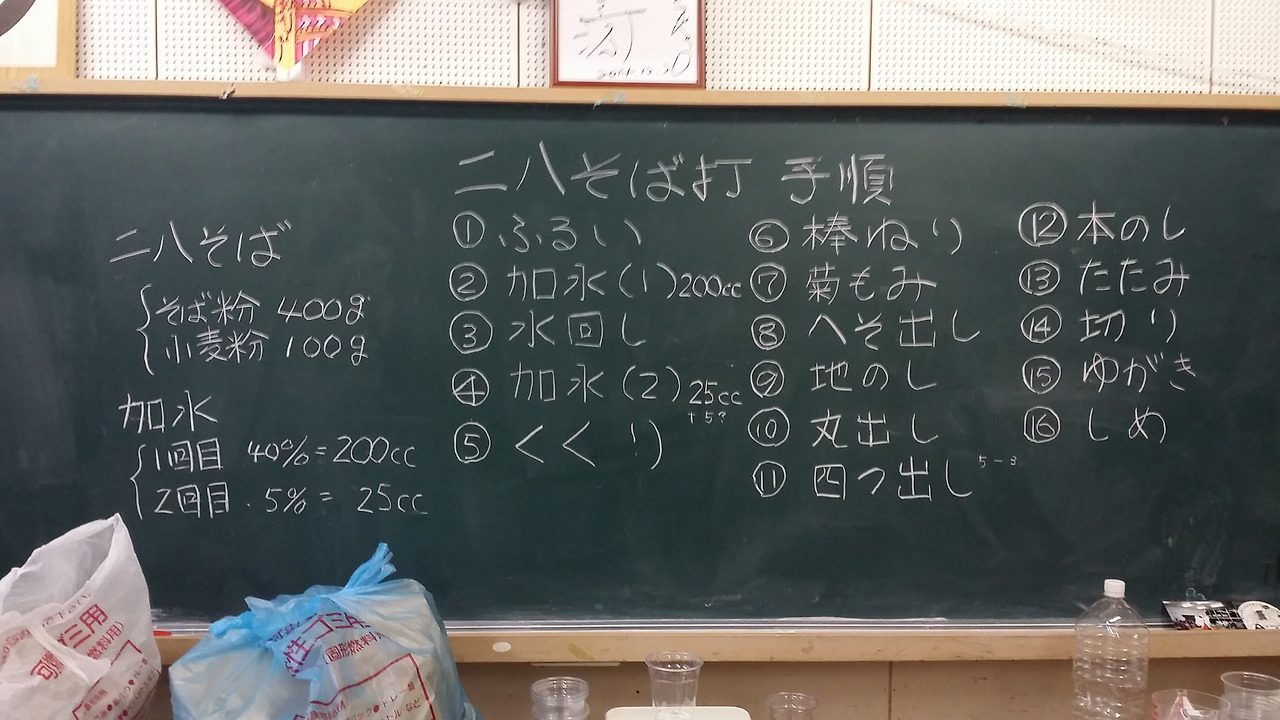 二八そば打 手順
二八そば
そば粉 400g
小麦粉 100g
加水
1回目 40%=200cc
2回目 . 5% = 25cc
① ふるい
② 加水(1)200cc
③ 水回し
④ 加水(2)25cc
+5?
⑤ くくり
⑥ 棒ねり
⑦ 菊もみ
⑧ へそ出し
⑨ 地のし
⑩ 丸出し
⑪ 四つ出し
⑫ 本のし
⑬ たたみ
⑭ 切り
⑮ ゆがき
⑯ しめ
ゴミ用
性ゴミ用